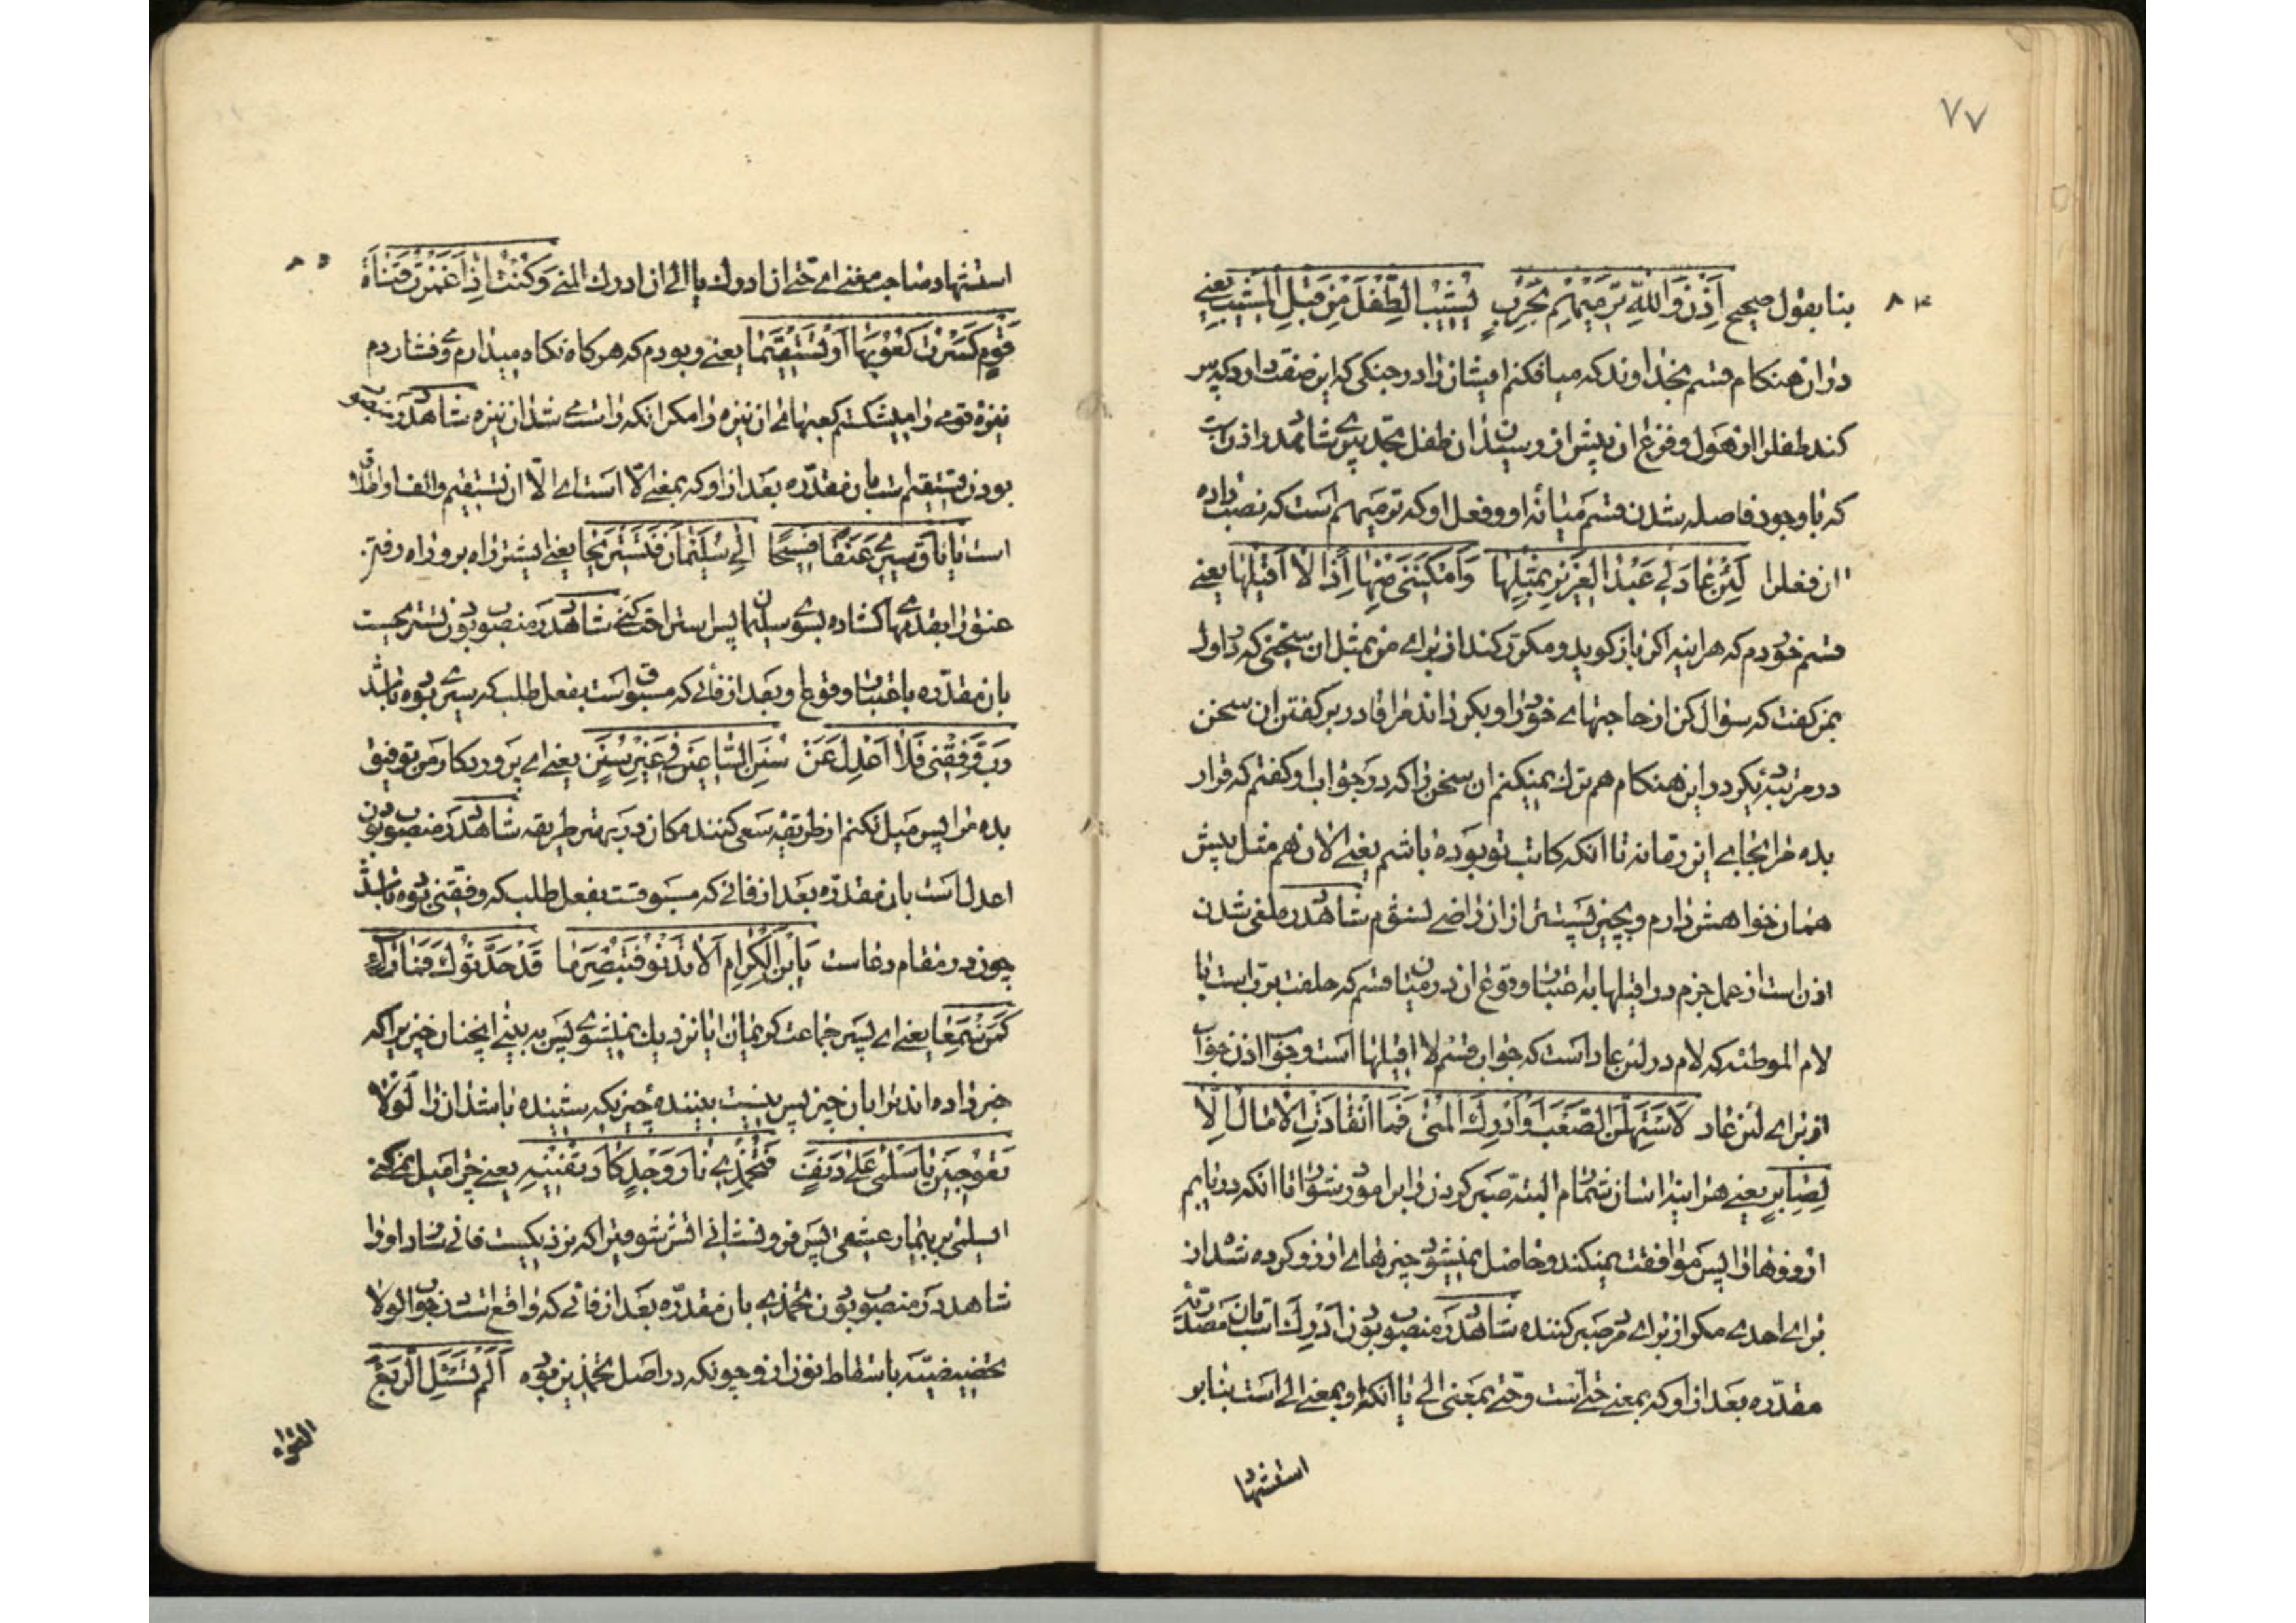 ۷۷
۸۴
بنا بقول صحیح اِذَنْ وَاللّٰهِ نَرْمِیَهُمْ بِحَرْبٍ تُشِیْبُ الطِّفْلَ مِنْ قَبْلِ الْمَشِیْبِ یعنی
در ان هنکام قسم بخداوند که میافکنم ایشان را در جنکی که این صفت دارد که پیر
کند طفل را از هول و فزع ان پیش از رسیدن ان طفل بحد پیری شاهد در اذن است
که با وجود فاصله شدن قسم میانه او و فعل او که نرمیهم است که نصب داده
ان فعل را لَئِنْ عَادَ لِی عَبْدُ الْعَزِیزِ بِمِثْلِهَا وَاَمْکَنَنِی مِنْهَا اِذًا لَا اُقِیْلُهَا یعنی
قسم خوردم که هر اینه اکر باز کوید و مکرر کند از برای من بمثل ان سخنی که در اول
بمن کفت که سؤال کن از حاجتهای خود را و بکرداند مرا قادر بر کفتن ان سخن
در مرتبه دیکر در این هنکام هم ترک نمیکنم ان سخن را که در جواب او کفتم که قرار
بده مرا بجای این رمانه تا انکه کاتب تو بوده باشم یعنی الان هم مثل پیش
همان خواهش دارم و بچیز پستتر از ان راضی نشوم شاهد در ملغی شدن
اذن است از عمل جزم در اقیلها به اعتبار وقوع ان در میان قسم که حلفت برب است با
لام الموطئه که لام در لئن عاد است که جواب قسم لا اقیلها است و جواب اذن جواب
از برای لئن عاد لَاَسْتَسْهِلَنَّ الصَّعْبَ اَوْ اُدْرِکَ الْمُنٰی فَمَا انْقَادَتِ الْاٰمَالُ اِلَّا
لِصَابِرٍ یعنی هر اینه اسان شمارم البته صبر کردن را بر امور دشوار تا انکه دریابم
ارزوها را پس موافقت نمیکند و حاصل نمیشود چیزهای ارزو کرده شده از
برای احدی مکر از برای مرد صبر کننده شاهد در منصوب بودن ادرک است بان مصدریه
مقدره بعد از او که بمعنی حتی است و حتی بمعنی الی یا انکه او بمعنی الی است بنا بر
استشها
۸۵
استشهاد صاحب مغنی ای حتی ان ادرک یا الی ان ادرک المنی وَکُنْتُ اِذَا غَمَزْتُ قَنَاةَ
قَوْمٍ کَسَرْتُ کُعُوبَهَا اَوْ تَسْتَقِیْمَا یعنی و بودم که هر کاه نکاه میدارم و فشاردم
نیزه قومی را میشکستم کعبهای ان نیزه را مکر انکه راست می شد ان نیزه شاهد در منصوب
بودن تستقیم است بان مقدره بعد از او که بمعنی الّا است ای الّا ان تستقیم و الف او اطلاق
است یَا نَاقُ سِیْرِی عَنَقًا فَسِیْحًا اِلٰی سُلَیْمَانَ فَنَسْتَرِیْحَا یعنی ای شتر راه برو راه رفتن
عنق را بقدمهای کشاده بسوی سلیمان پس استراحت کنی شاهد در منصوب بودن نستریح است
بان مقدره باعتبار وقوع او بعد از فائی که مسبوق است بفعل طلب که سیری بوده باشد
رَبِّ وَفِّقْنِی فَلَا اَعْدِلَ عَنْ سَنَنِ السَّاعِیْنَ فِی خَیْرِ سَنَنٍ یعنی ای پروردکار من توفیق
بده مرا پس میل نکنم از طریقه سعی کنندمکان در بهتر طریقه شاهد در منصوب بودن
اعدل است بان مقدره بعد از فائی که مسبوقست بفعل طلب که وفقنی بوده باشد
چون در مقام دعاست یَا بْنَ الْکِرَامِ اَلَا تَدْنُو فَتُبْصِرَ مَا قَدْ حَدَّثُوکَ فَمَا رَاءٍ
کَمَنْ سَمِعَا یعنی ای پسر جماعت کریمان ایا نزدیک نمیشوی پس به بینی انچنان چیزیرا که
خبر داده اند ترا بان چیز پس نیست بیننده چیزیکه شنیده باشد ان را لَوْلَا
تَعُوجِیْنَ یَا سَلْمٰی عَلٰی دَنِفٍ فَتُخْمِدِی نَارَ وَجْدٍ کَادَ یُفْنِیْهِ یعنی چرا میل نمیکنی
ای سلمی بر بیمار عشقی پس فرو نشانی اتش شوقیرا که نزدیکست فانی سازد او را
شاهد در منصوب بودن تخمدی بان مقدره بعد از فائی که واقع است در جواب لولا
تحضیضیته باسقاط نون از او چونکه در اصل تخمدین بوده اَلَمْ تَسْئَلِ الرَّبْعَ
القواء